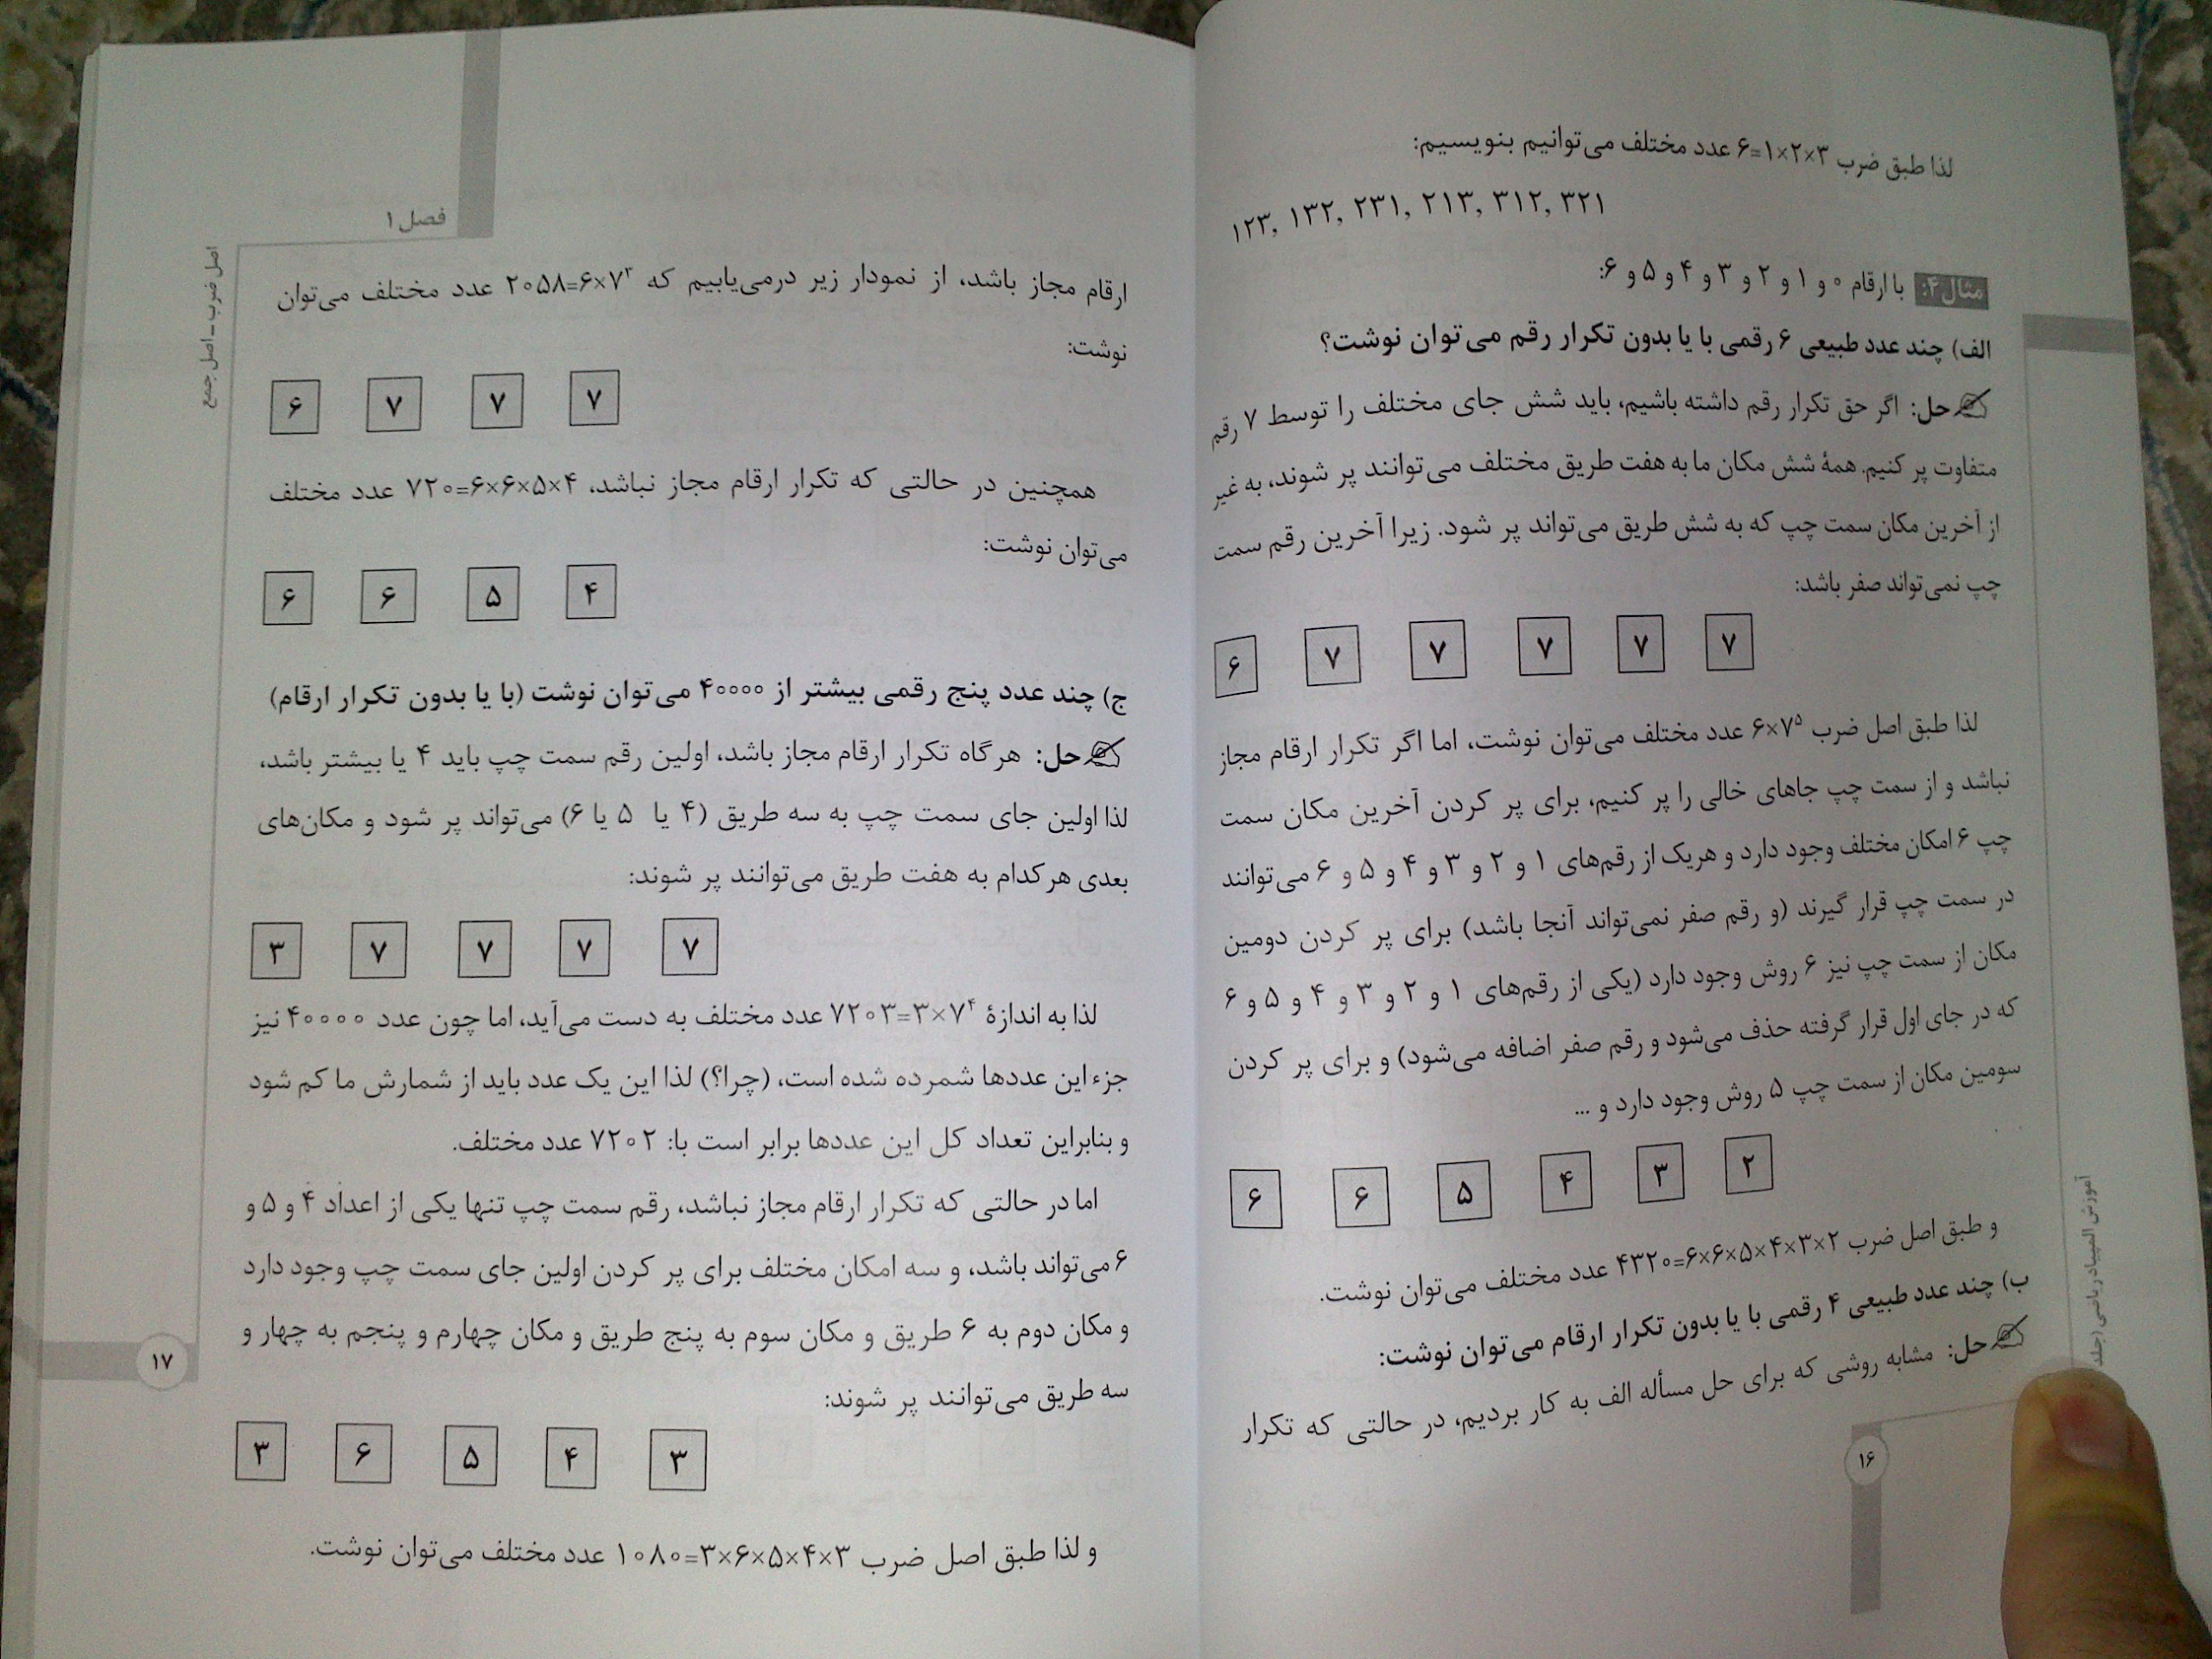 لذا طبق ضرب ۳×۲×۱=۶ عدد مختلف می‌توانیم بنویسیم:
۱۲۳, ۱۳۲, ۲۳۱, ۲۱۳, ۳۱۲, ۳۲۱
مثال ۴: با ارقام ۰ و ۱ و ۲ و ۳ و ۴ و ۵ و ۶:
الف) چند عدد طبیعی ۶ رقمی با یا بدون تکرار رقم می‌توان نوشت؟
حل: اگر حق تکرار رقم داشته باشیم، باید شش جای مختلف را توسط ۷ رقم
متفاوت پر کنیم. همهٔ شش مکان ما به هفت طریق مختلف می‌توانند پر شوند، به غیر
از آخرین مکان سمت چپ که به شش طریق می‌تواند پر شود. زیرا آخرین رقم سمت
چپ نمی‌تواند صفر باشد:
۶ ۷ ۷ ۷ ۷ ۷
لذا طبق اصل ضرب ۶×۷⁵ عدد مختلف می‌توان نوشت، اما اگر تکرار ارقام مجاز
نباشد و از سمت چپ جاهای خالی را پر کنیم، برای پر کردن آخرین مکان سمت
چپ ۶ امکان مختلف وجود دارد و هریک از رقم‌های ۱ و ۲ و ۳ و ۴ و ۵ و ۶ می‌توانند
در سمت چپ قرار گیرند (و رقم صفر نمی‌تواند آنجا باشد) برای پر کردن دومین
مکان از سمت چپ نیز ۶ روش وجود دارد (یکی از رقم‌های ۱ و ۲ و ۳ و ۴ و ۵ و ۶
که در جای اول قرار گرفته حذف می‌شود و رقم صفر اضافه می‌شود) و برای پر کردن
سومین مکان از سمت چپ ۵ روش وجود دارد و ...
۶ ۶ ۵ ۴ ۳ ۲
و طبق اصل ضرب ۲×۳×۴×۵×۶×۶=۴۳۲۰ عدد مختلف می‌توان نوشت.
ب) چند عدد طبیعی ۴ رقمی با یا بدون تکرار ارقام می‌توان نوشت:
حل: مشابه روشی که برای حل مسأله الف به کار بردیم، در حالتی که تکرار
آموزش المپیاد ریاضی (جلد
۱۶
فصل ۱
اصل ضرب ـ اصل جمع
ارقام مجاز باشد، از نمودار زیر درمی‌یابیم که ۶×۷³=۲۰۵۸ عدد مختلف می‌توان
نوشت:
۶ ۷ ۷ ۷
همچنین در حالتی که تکرار ارقام مجاز نباشد، ۴×۵×۶×۶=۷۲۰ عدد مختلف
می‌توان نوشت:
۶ ۶ ۵ ۴
ج) چند عدد پنج رقمی بیشتر از ۴۰۰۰۰ می‌توان نوشت (با یا بدون تکرار ارقام)
حل: هرگاه تکرار ارقام مجاز باشد، اولین رقم سمت چپ باید ۴ یا بیشتر باشد،
لذا اولین جای سمت چپ به سه طریق (۴ یا ۵ یا ۶) می‌تواند پر شود و مکان‌های
بعدی هرکدام به هفت طریق می‌توانند پر شوند:
۳ ۷ ۷ ۷ ۷
لذا به اندازهٔ ۳×۷⁴=۷۲۰۳ عدد مختلف به دست می‌آید، اما چون عدد ۴۰۰۰۰ نیز
جزء این عددها شمرده شده است، (چرا؟) لذا این یک عدد باید از شمارش ما کم شود
و بنابراین تعداد کل این عددها برابر است با: ۷۲۰۲ عدد مختلف.
اما در حالتی که تکرار ارقام مجاز نباشد، رقم سمت چپ تنها یکی از اعداد ۴ و ۵ و
۶ می‌تواند باشد، و سه امکان مختلف برای پر کردن اولین جای سمت چپ وجود دارد
و مکان دوم به ۶ طریق و مکان سوم به پنج طریق و مکان چهارم و پنجم به چهار و
سه طریق می‌توانند پر شوند:
۳ ۶ ۵ ۴ ۳
و لذا طبق اصل ضرب ۳×۴×۵×۶×۳=۱۰۸۰ عدد مختلف می‌توان نوشت.
۱۷